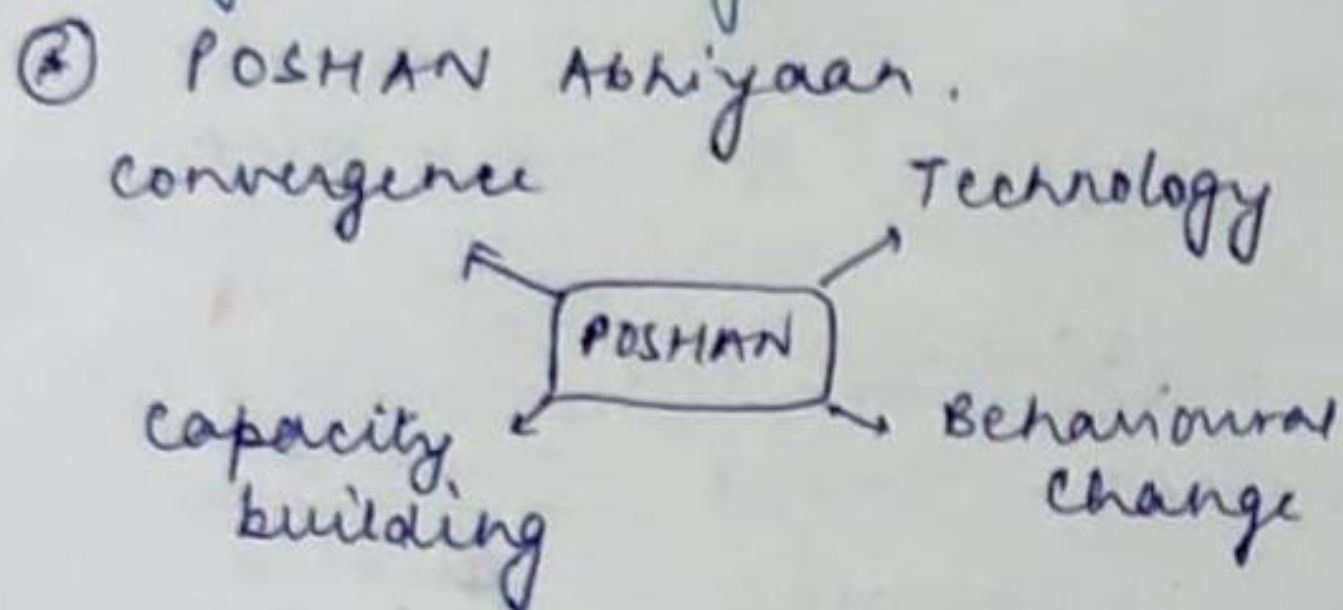 ② POSHAN Abhiyaan.
Convergence
Technology
POSHAN
Capacity
building
Behavioural
Change